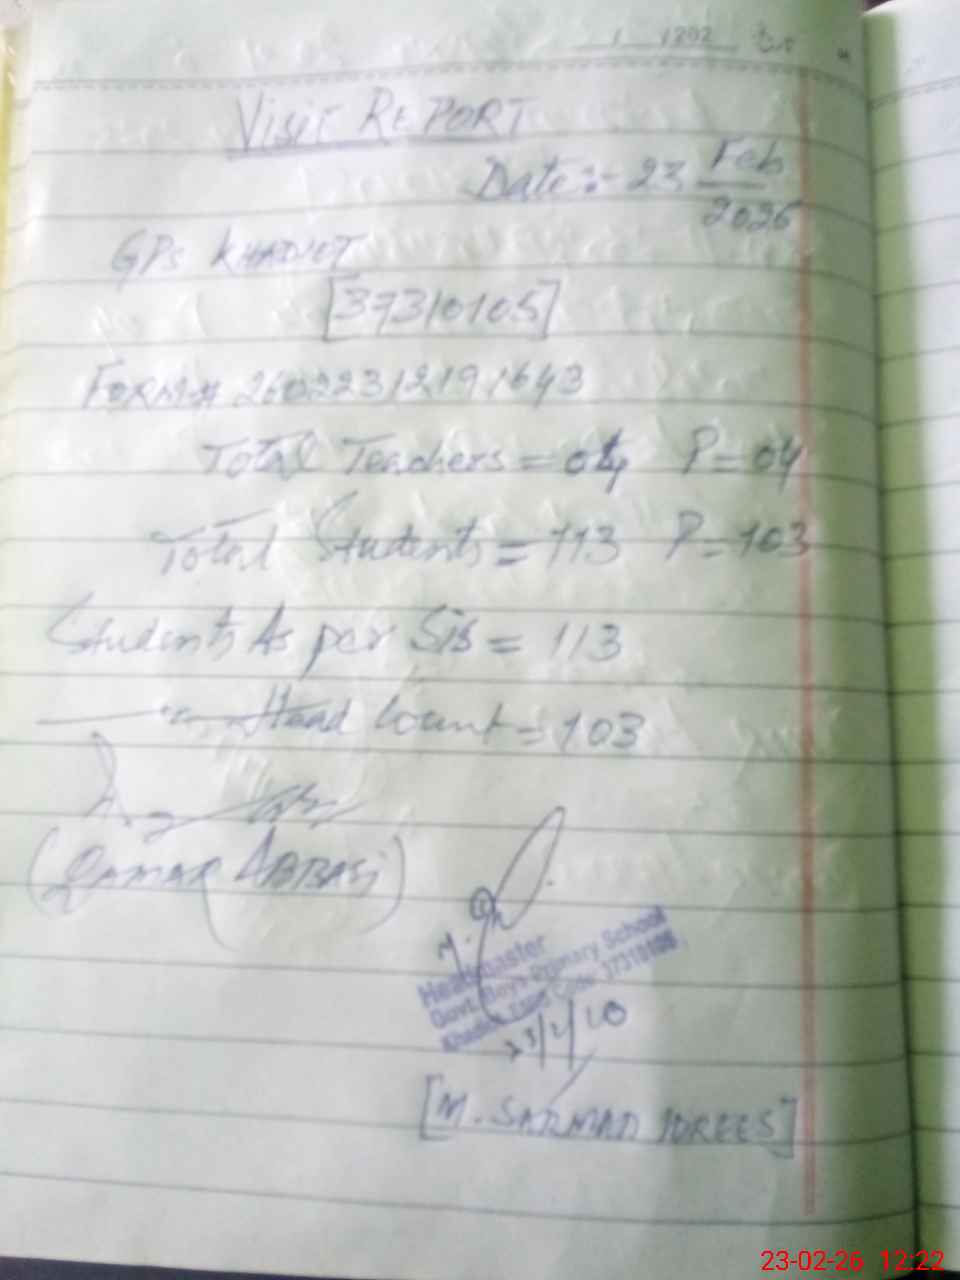 VISIT REPORT
Date:- 23 Feb
2026
GPS KHADJET
[37310105]
FORM# 26022312191643
Total Teachers = 04 P = 04
Total Students = 113 P = 103
Students As per SIS = 113
Head Count = 103
(QAMAR ABBASI)
Headmaster
Govt. Boys Primary School
Code 37310105
[M. SARMAD IDREES]
23-02-26 12:22